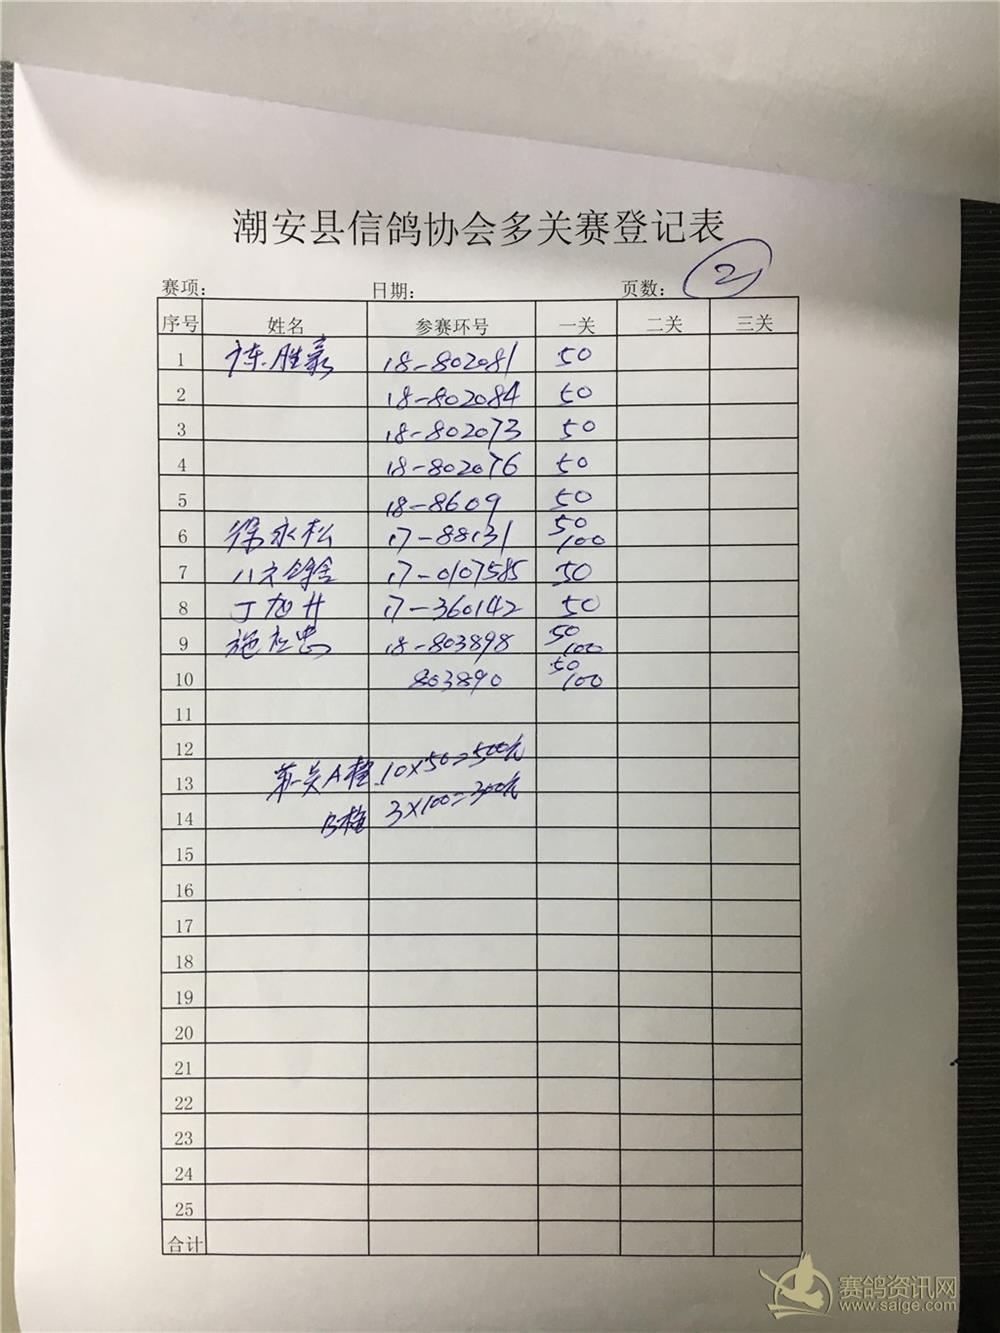 潮安县信鸽协会多关赛登记表
赛项: 日期: 页数: 2
序号 姓名 参赛环号 一关 二关 三关
1 陈胜豪 18-802081 50
2 18-802084 50
3 18-802073 50
4 18-802076 50
5 18-8609 50
6 徐永松 17-88131 50 100
7 17-0107585 50
8 丁旭升 17-360142 50
9 施 忠 18-803898 50 100
10 803890 50 100
11
12
13 第一关A 10×50=500元
14 B 3×100=300元
15
16
17
18
19
20
21
22
23
24
25
合计
赛鸽资讯网
www.saige.com